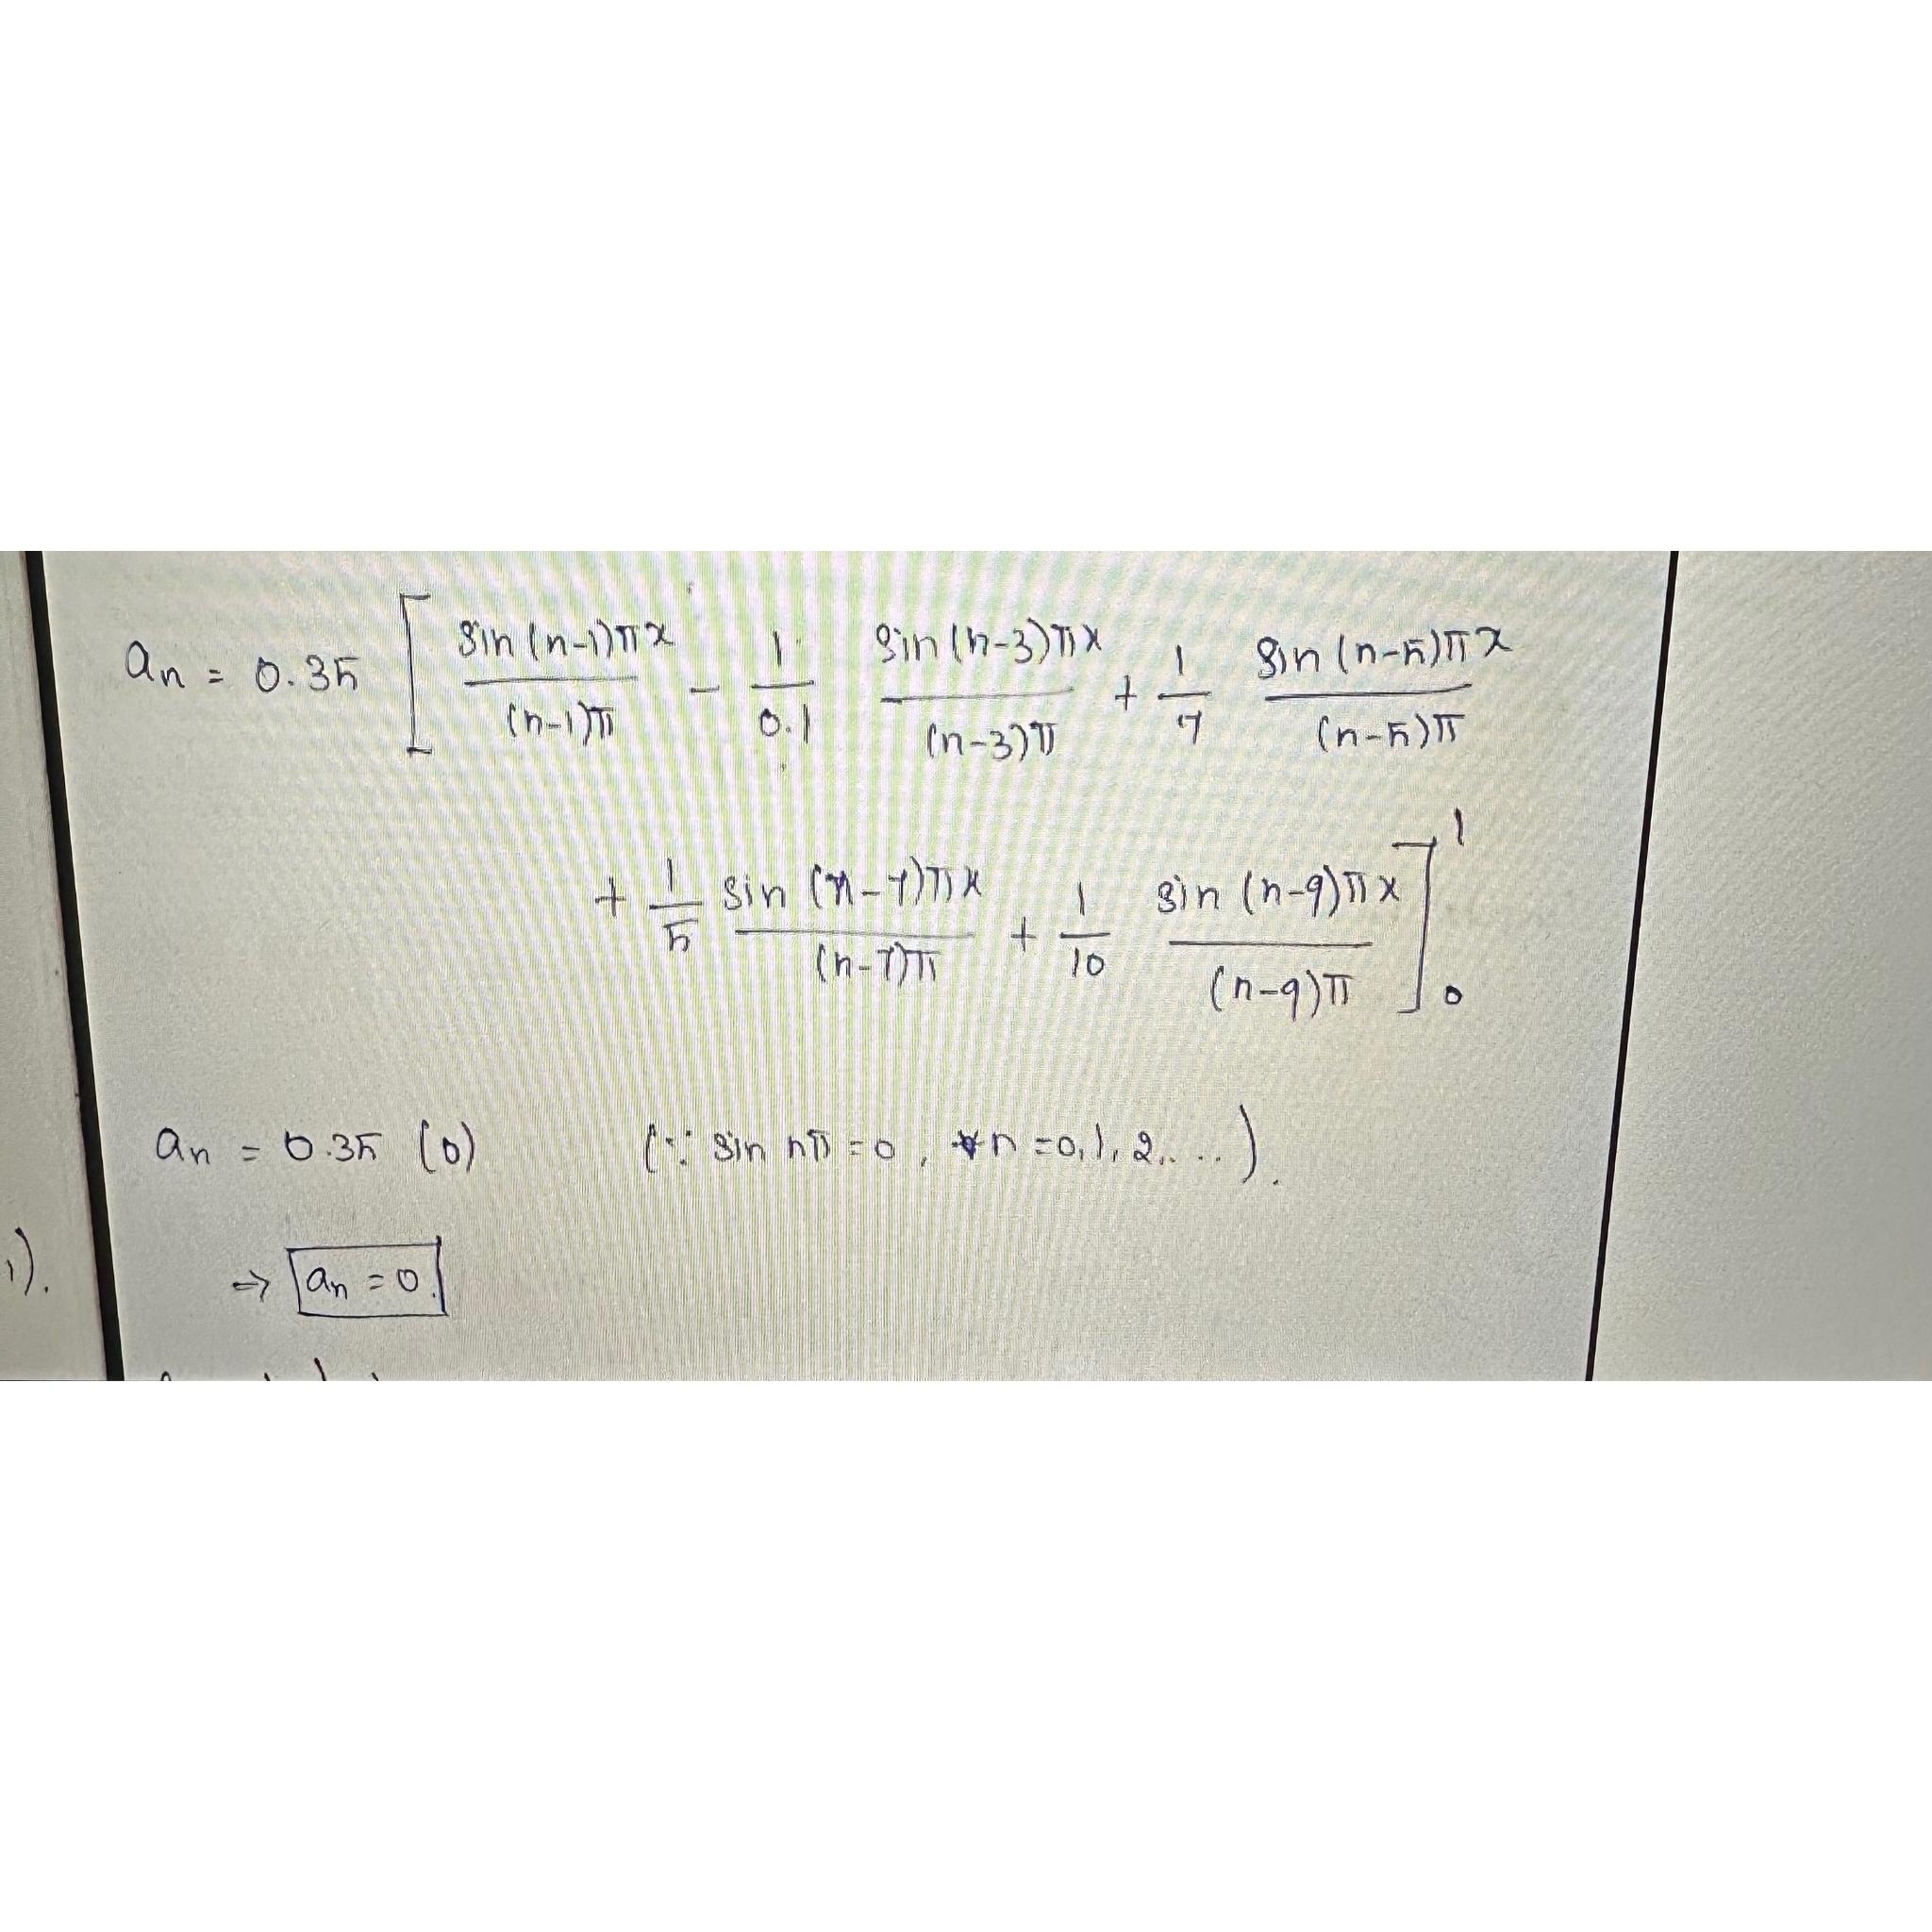 an = 0.35 [ sin(n-1)πx / (n-1)π - 1/0.1 sin(n-3)πx / (n-3)π + 1/7 sin(n-5)πx / (n-5)π
+ 1/5 sin(n-7)πx / (n-7)π + 1/10 sin(n-9)πx / (n-9)π ]₀¹
an = 0.35 (0) (∵ sin nπ = 0, ∀n = 0,1,2,...).
1).
⇒ an = 0.